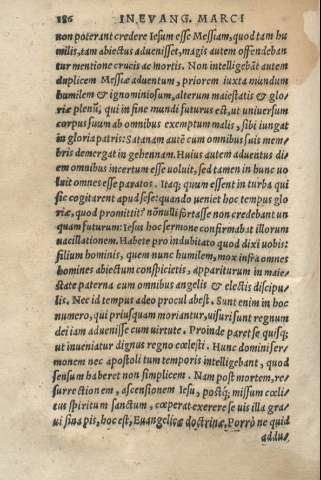 186 IN EVANG. MARCI
non poterant credere Iesum esse Messiam, quod tam hu
milis, tam abiectus aduenisset, magis autem offendeban
tur mentione crucis ac mortis. Non intelligebāt autem
duplicem Messiæ aduentum, priorem iuxta mundum
humilem & ignominiosum, alterum maiestatis & glo⸗
riæ plenū, qui in fine mundi futurus est, ut uniuersum
corpus suum ab omnibus exemptum malis, sibi iungat
in gloria patris: Satanam autē cum omnibus suis mem⸗
bris demergat in gehennam. Huius autem aduentus di⸗
em omnibus incertum esse uoluit, sed tamen in hunc uo
luit omnes esse paratos. Itaq; quum essent in turba qui
sic cogitarent apud sese: quando ueniet hoc tempus glo
riæ, quod promittit? nōnulli fortasse non credebant un
quam futurum: Iesus hoc sermone confirmabat illorum
uacillationem. Habete pro indubitato quod dixi uobis:
filium hominis, quem nunc humilem, mox infra omnes
homines abiectum conspicietis, appariturum in maie⸗
state paterna cum omnibus angelis & electis discipu⸗
lis. Nec id tempus adeo procul abest. Sunt enim in hoc
numero, qui priusquam moriantur, uisuri sunt regnum
dei iam aduenisse cum uirtute. Proinde paret se quisq;
ut inueniatur dignus regno cœlesti. Hunc domini ser⸗
monem nec apostoli tum temporis intelligebant, quod
sensum haberet non simplicem. Nam post mortem, re⸗
surrectionem, ascensionem Iesu, postq; missum cœli⸗
tus spiritum sanctum, cœperat exerere se uis illa gra⸗
ui sinapis, hoc est, Euangelicæ doctrinæ, Porrò ne quid
addus⸗